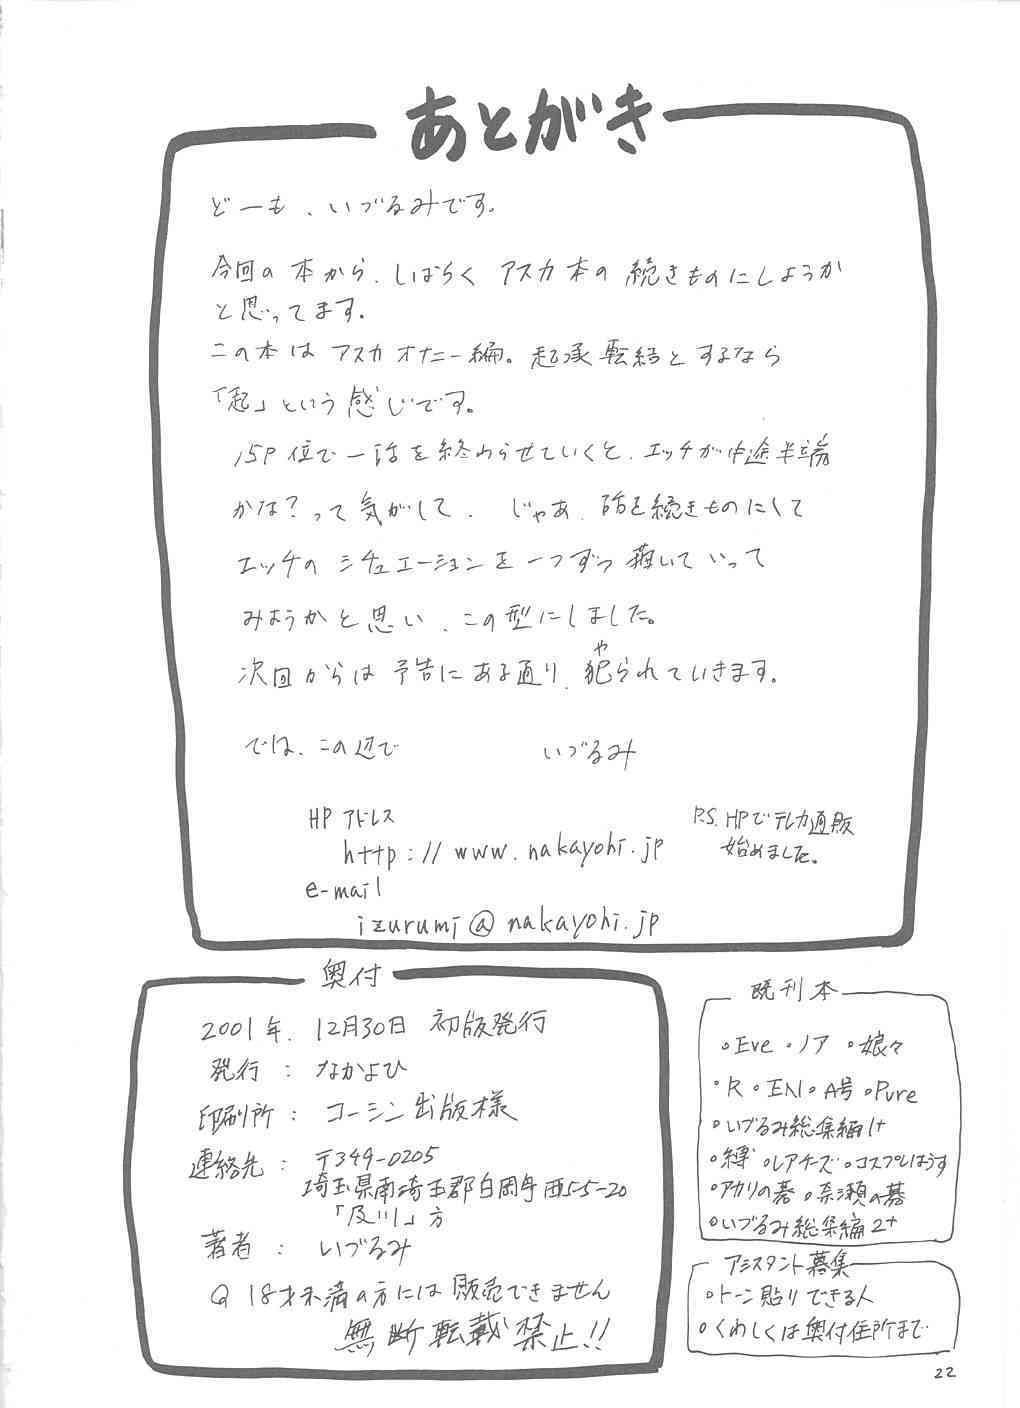 あとがき
どーも、いづるみです。
今回の本から、しばらくアスカ本の続きものにしようか
と思ってます。
この本はアスカオナニー編。起承転結とするなら
「起」という感じです。
15P位で一話を終わらせていくと、エッチが中途半端
かな?って気がして、じゃあ、話を続きものにして
エッチのシチュエーションを一つずつ描いていって
みようかと思い、この型にしました。
次回からは予告にある通り、犯られていきます。
や
では、この辺で
いづるみ
HPアドレス
http://www.nakayohi.jp
e-mail
izurumi@nakayohi.jp
P.S. HPでテレカ通販
始めました。
奥付
2001年、12月30日 初版発行
発行:なかよひ
印刷所:コーシン出版様
連絡先:〒349-0205
埼玉県南埼玉郡白岡町西5-5-20
「及川」方
著者:いづるみ
18才未満の方には販売できません
無断転載禁止!!
既刊本
○Eve ○ノア ○娘々
○R ○EN ○A号 ○Pure
○いづるみ総集編1+
○縛 ○レアチーズ ○コスプレはうす
○アカリの碁 ○奈瀬の碁
○いづるみ総集編2+
アシスタント募集
○トーン貼りできる人
○くわしくは奥付住所まで
22